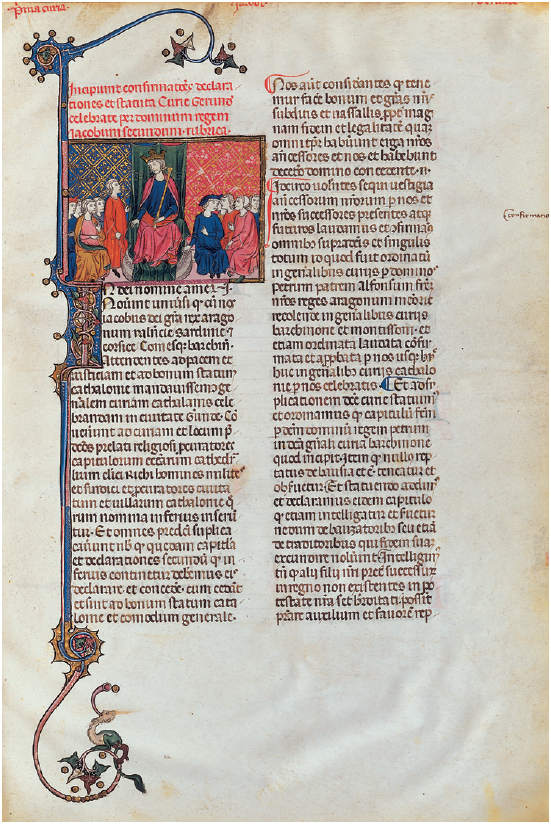 Prima curia.
Jacobi.
Incipiunt confirmatões declara
tiones et statuta Curie Gerunde
celebrate per dominum regem
Jacobum secundum. rubrica.
In dei nomine amen.
Nouerint uniũsi q̃ cũ nos
iacobus dei gr̃a rex arago
num ualẽcie sardinie
corsice Comesq; barchiñ.
Attendentes ad pacem et
iusticiam et ad bonum statum
cathalonie mandauissemo ge
nẽalem curiam cathalanis cele
brandam in ciuitate Gerunde. Cõ
uenerunt ad curiam et locum p̃
dc̃os prelati religiosi procuratores
capitulorum ecc̃arum cathedra
lium clici Richi homines milites
et sindici et procuratores ciuita
tum et uillarum cathalonie q̃
rum nomina inferius inserun
tur. Et omnes predc̃i suplica
uerunt nob̃ q̃ quedam capitula
et declarationes secundũ q̃ in
ferius continetur deberemus ei
declarare et concedẽ. cum cedãt
et sint ad bonum statum cata
lonie et comodum generale.
Nos aũt considerantes q̃ tene
mur facẽ bonum et grãs nr̃is
subditis et uassallis. pp̃t mag
nam fidem et legalitatẽ quaz
omni tp̃r habuerunt erga nr̃os
añcessores et nos et habebunt
decetero domino concedente.
Idcirco uolentes sequi uestigia
añcessorum nr̃orum p nos et
nr̃os successores presentes atq;
futuros laudamus et cõfirmam
omnib̃ supradc̃is et singulis
totum id quod fuit ordinatũ
in gñalibus curijs p dominos
petrum patrem alfonsum frem
nr̃os reges aragonum memorie
recolende in gñalibus curijs
barchinone et montissoni. et
etiam ordinata laudata cõfir
mata et approbata p nos usq; hũc
huc in gẽnalib̃ curijs catalo
nie p nos celebratis. Et ad sup
plicationem dcẽ curie statuim
et ordinamus q̃ capitulũ fem
p̃ dominum regem petrum
in dcã gñali curia barchinone
quod incipit. Item q̃ nullo rep
tatus de bausia etc̃ teneatur et
obseruetur. Et statuendo adicim
et declaramus eidem capitulo
q̃ etiam intelligatur et seruetur
nedum de bauzatorib̃ seu etiã
de traditoribus qui fidem suaz
excondire noluerint. Intelligim
tñ q̃ alij filij nr̃i preter successorem
in regno non existentes in po
testate nr̃a seu h̃editati. possint
prestare auxilium et fauorẽ rep
Confirmatio